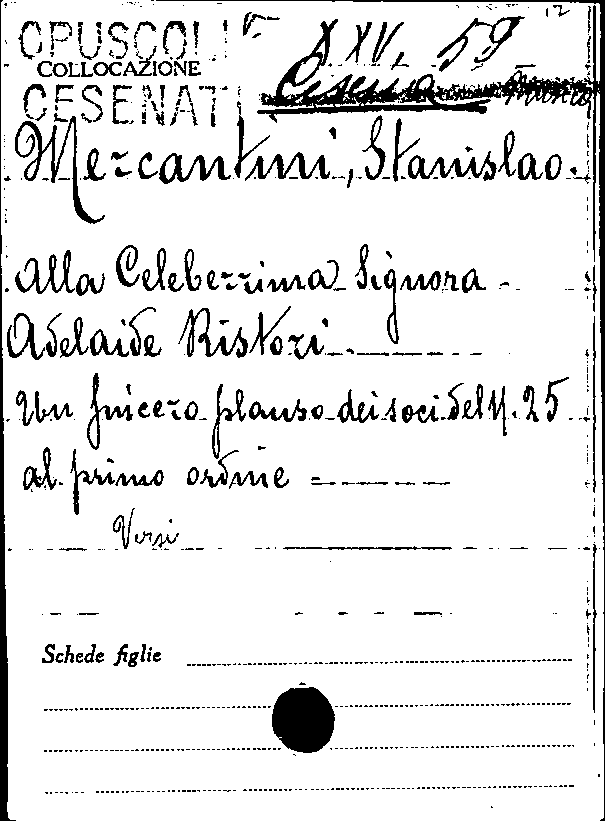 12
OPUSCOLI V- XXV, 59
COLLOCAZIONE
CESENATI Cesena
Mercantini, Stanislao.
Alla Celeberrima Signora
Adelaide Ristori
Un sincero plauso dei soci del N. 25
al primo ordine
Versi
Schede figlie